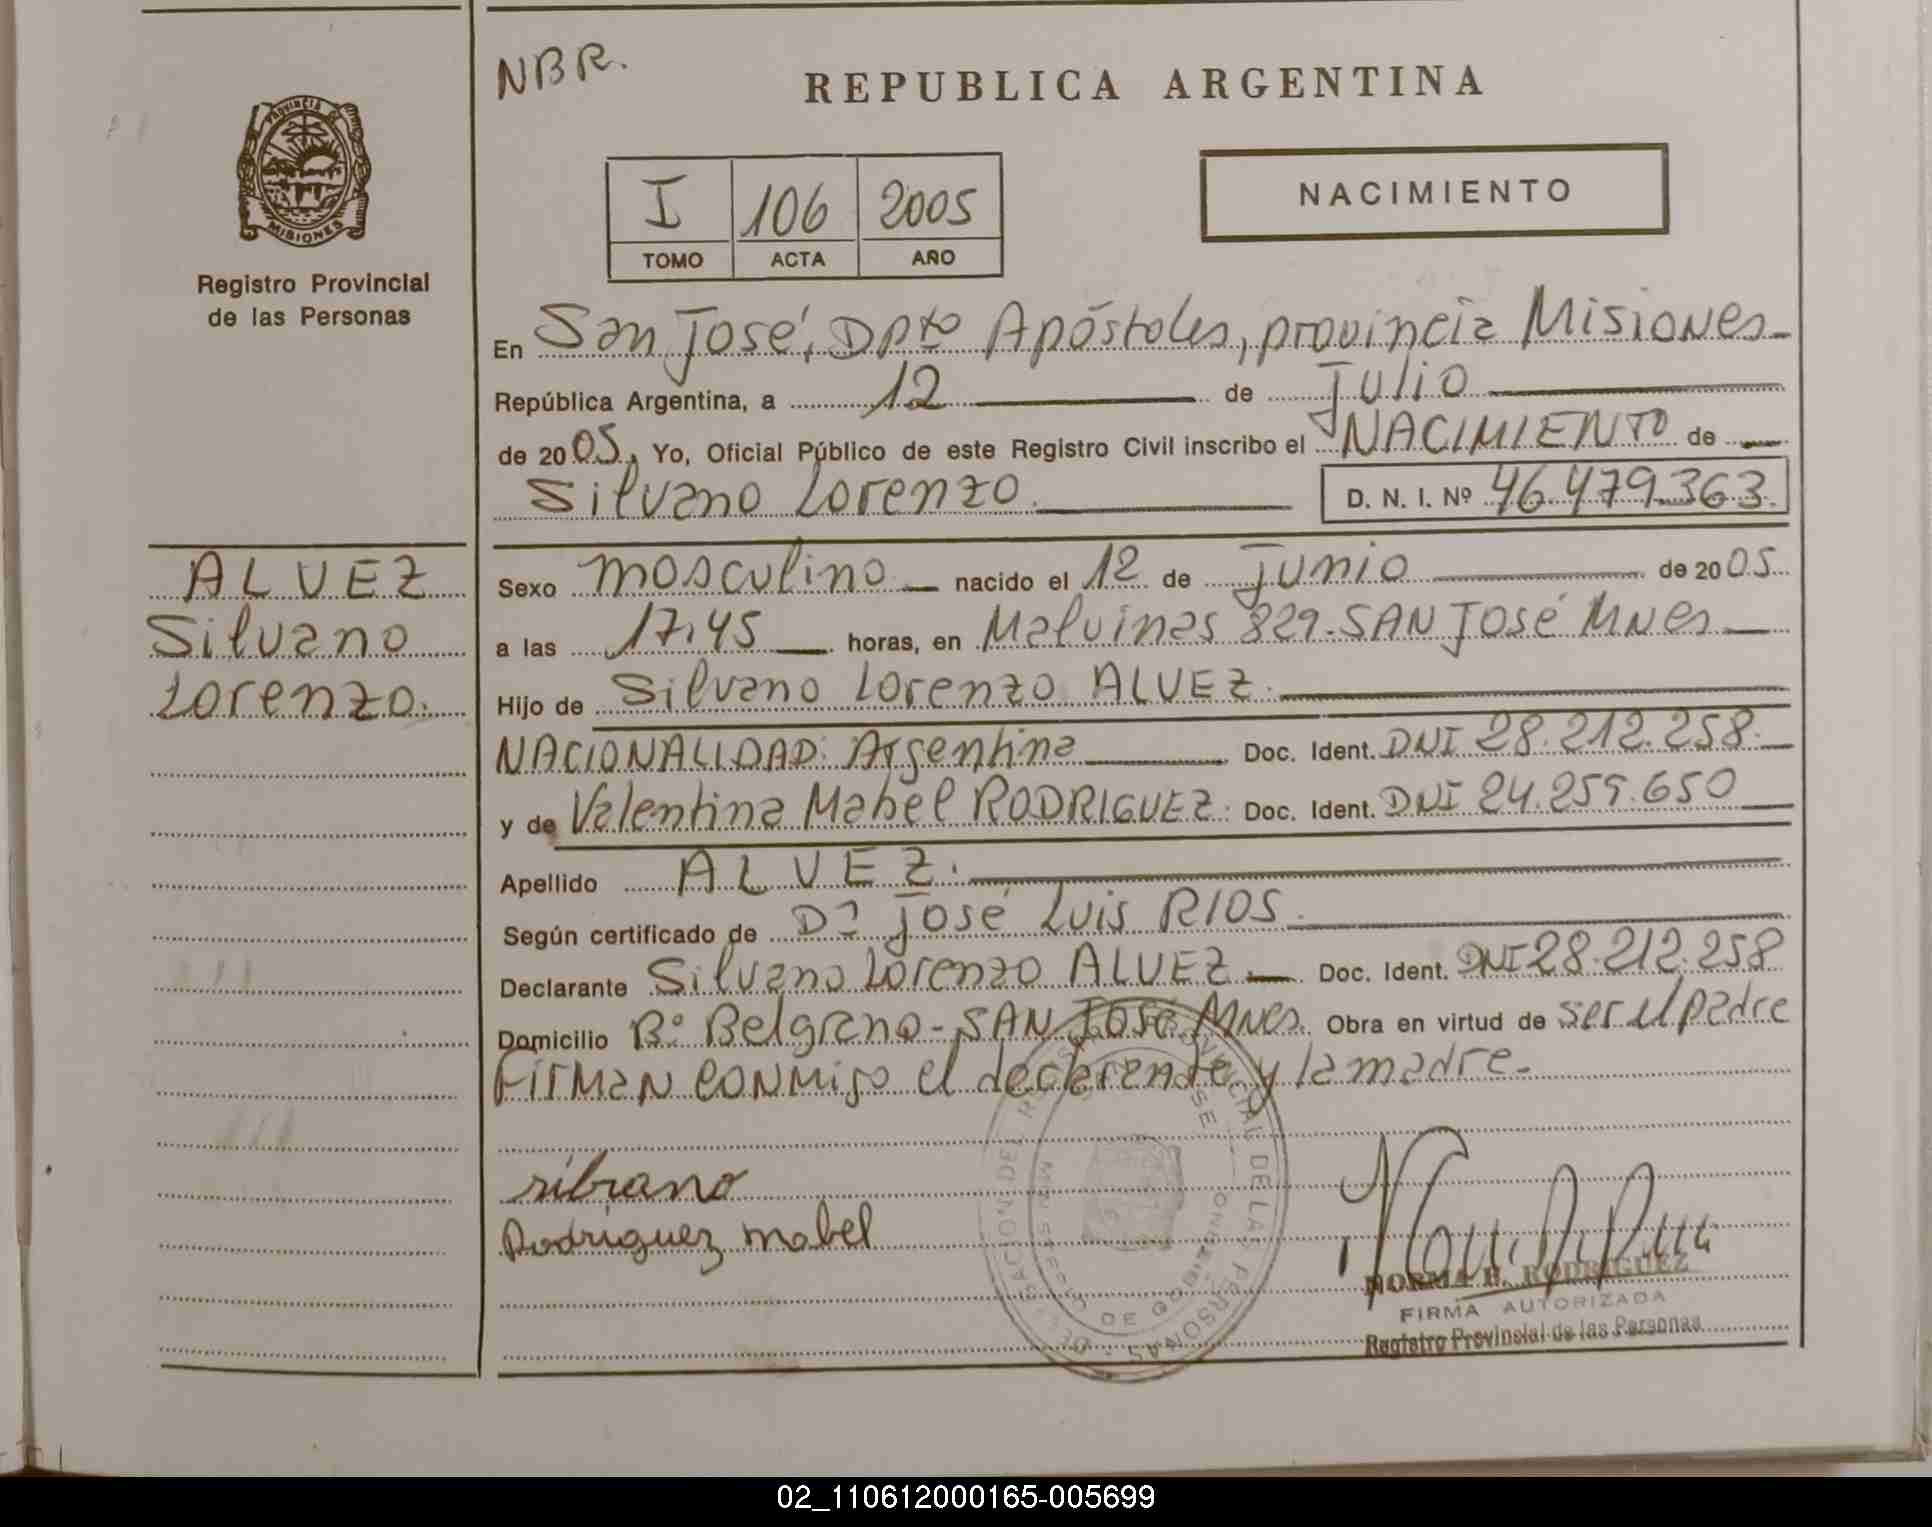 NBR.
REPUBLICA ARGENTINA
PROVINCIA DE
MISIONES
Registro Provincial
de las Personas
I 106 2005
TOMO ACTA AÑO
NACIMIENTO
En San José, Dpto Apóstoles, provincia Misiones
República Argentina, a 12 de Julio
de 2005, Yo, Oficial Público de este Registro Civil inscribo el NACIMIENTO de
Silvano Lorenzo. D. N. I. Nº 46.479.363.
ALVEZ
Silvano
Lorenzo.
Sexo masculino nacido el 12 de Junio de 2005
a las 17,45 horas, en Malvinas 829-SAN José Mnes
Hijo de Silvano Lorenzo ALVEZ.
NACIONALIDAD: Argentina Doc. Ident. DNI 28.212.258.
y de Valentina Mabel RODRIGUEZ. Doc. Ident. DNI 24.259.650
Apellido ALVEZ.
Según certificado de Dr José Luis RIOS.
Declarante Silvano Lorenzo ALVEZ Doc. Ident. DNI 28.212.258
Domicilio Bº Belgrano - SAN José Mnes. Obra en virtud de ser el padre
Firman conmigo el declarante y la madre.
silvano
Rodriguez mabel
NORMA B. RODRIGUEZ
FIRMA AUTORIZADA
Registro Provincial de las Personas
02_110612000165-005699